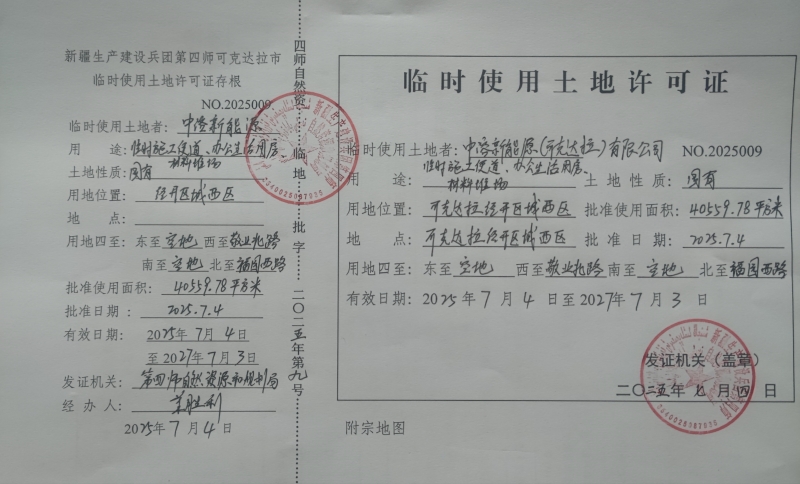 新疆生产建设兵团第四师可克达拉市
临时使用土地许可证存根
NO.2025009
临时使用土地者：中溶新能源
用途：临时施工便道、办公生活用房、
材料堆场
土地性质：国有
用地位置：经开区城西区
地点：
用地四至：东至空地西至敬业北路
南至空地北至福园西路
批准使用面积：40559.78平方米
批准日期：2025.7.4
有效日期：2025年7月4日
至2027年7月3日
发证机关：第四师自然资源和规划局
经办人：
2025年7月4日
四师自然资临地批字二〇二五年第九号
临时使用土地许可证
临时使用土地者：中溶新能源（可克达拉）有限公司 NO.2025009
用途：临时施工便道、办公生活用房、材料堆场 土地性质：国有
用地位置：可克达拉经开区城西区 批准使用面积：40559.78平方米
地点：可克达拉经开区城西区 批准日期：2025.7.4
用地四至：东至空地西至敬业北路南至空地北至福园西路
有效日期：2025年7月4日至2027年7月3日
发证机关（盖章）
二〇二五年七月四日
附宗地图